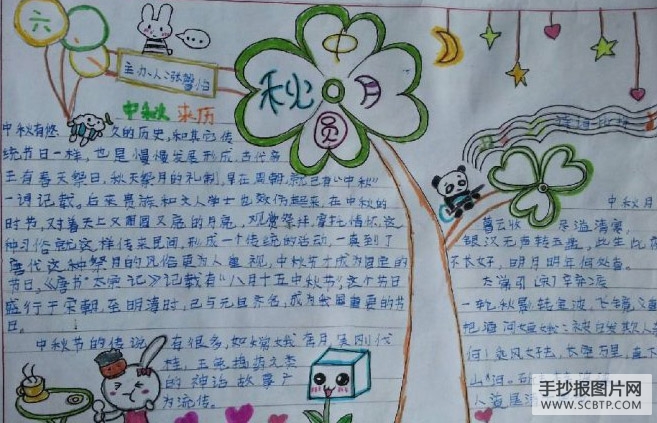 六
主办人:张
中秋月圆
中秋来历
中秋有悠久的历史,和其它传
统节日一样,也是慢慢发展形成,古代帝
王有春天祭日,秋天祭月的礼制,早在周朝,就已有“中秋”
一词记载。后来贵族和文人学士也效仿起来,在中秋的
时节,对着天上又圆又亮的月亮,观赏祭拜,寄托情怀,这
种习俗就这样传来民间,形成一个传统的活动,一直到了
唐代这种祭月的风俗更为人重视,中秋节才成为固定的
节日,《唐书·太宗记》记载有“八月十五中秋节”,这个节日
盛行于宋朝,至明清时,已与元旦齐名,成为我国重要的节
日。
中秋节的传说有很多,如嫦娥奔月,吴刚伐
桂,玉兔捣药之类
的神话故事广
为流传。
中秋月
暮云收 尽溢清寒,
银汉无声转玉盘,此生此
不长好,明月明年何处看。
一轮秋影转金波,飞镜
把酒问姮娥:被白发欺人
何!乘风好去,长空万里,直下
山河。
人道
手抄报图片网
WWW.SCBTP.COM